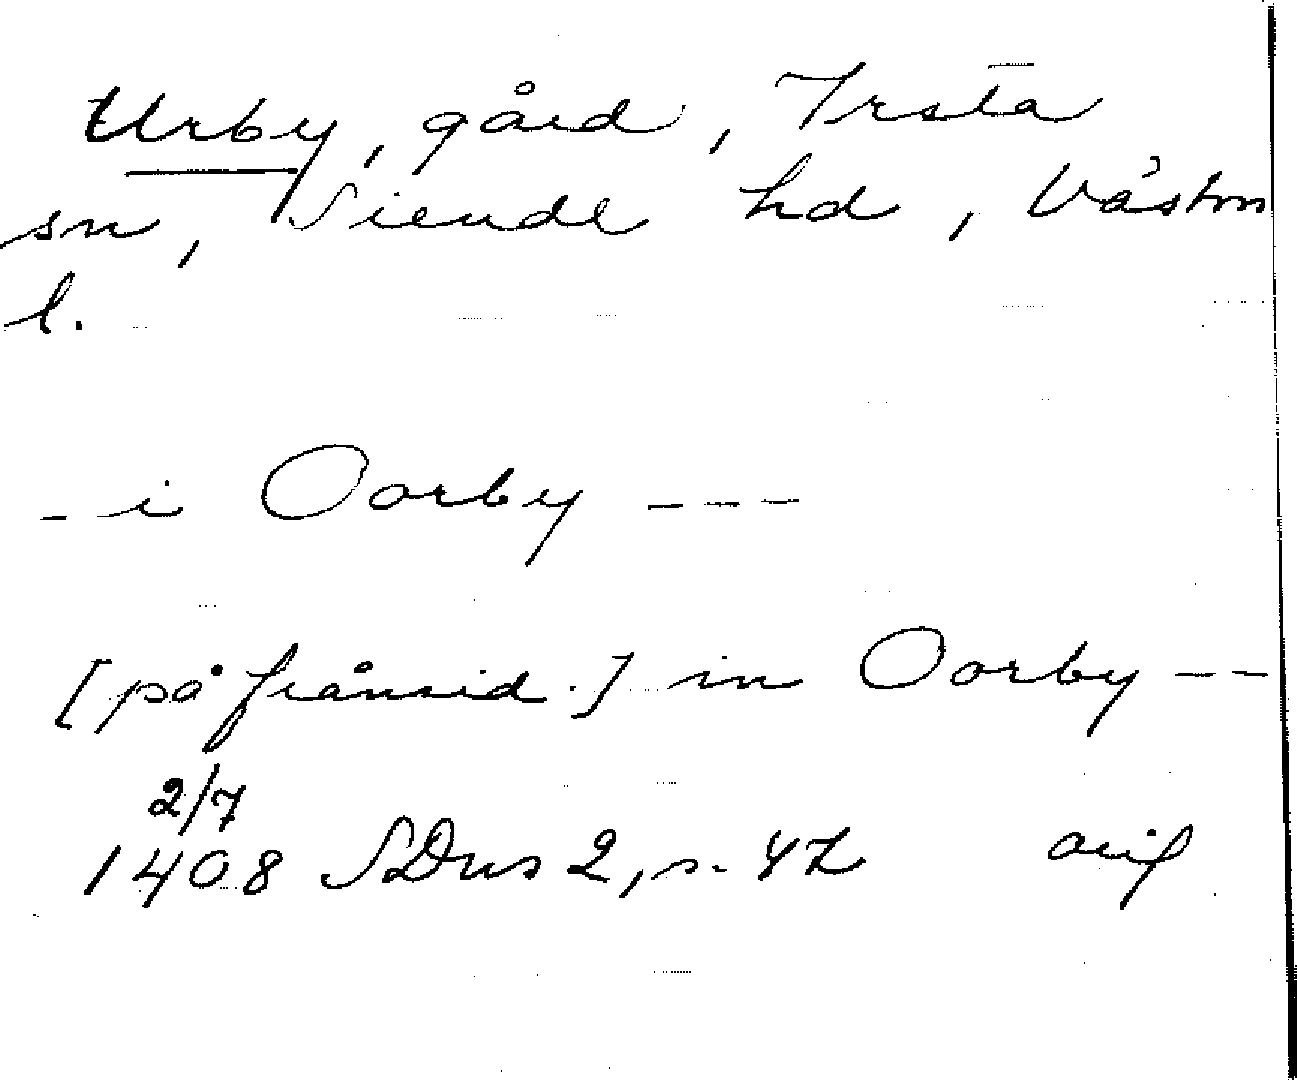 Urby, gård, Irsta
sn, Siende hd, Västm
l.
- i Oorby ---
[på frånsid.] in Oorby --
2/7
1408 SDns 2, s. 42 avskr